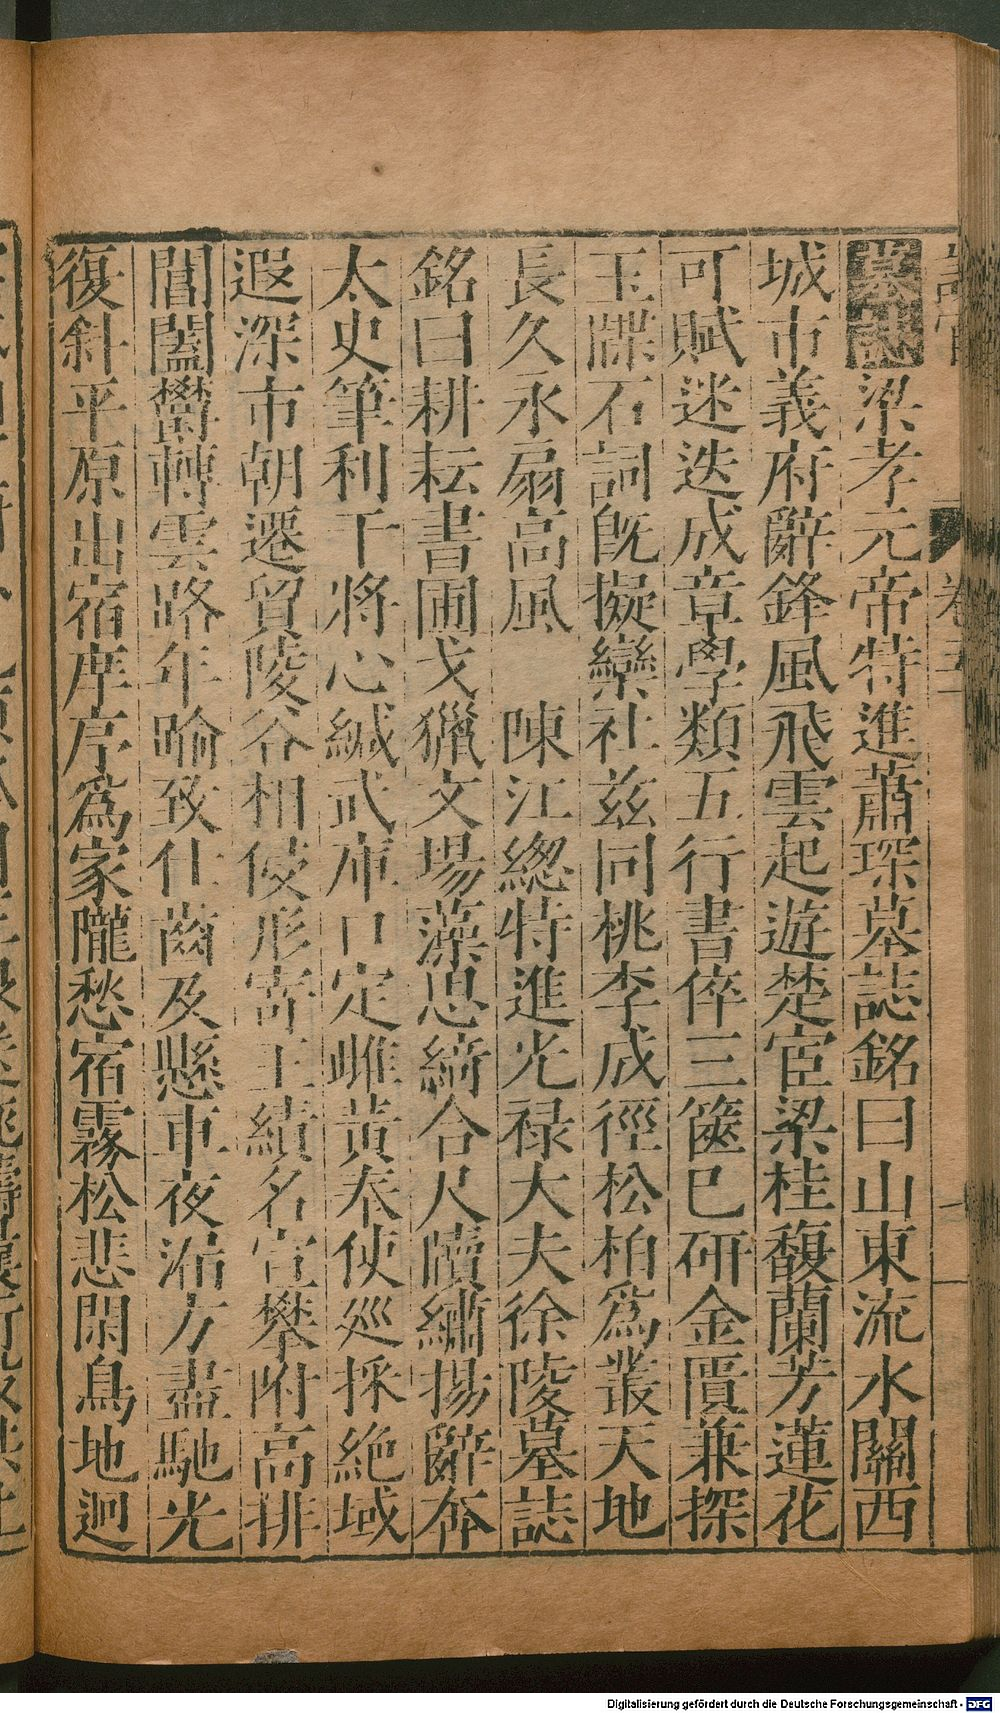 墓誌梁孝元帝特進蕭琛墓誌銘曰山東流水關西
城市義府辭鋒風飛雲起遊楚宦梁桂馥蘭芳蓮花
可賦迷迭成章學類五行書倅三篋巳研金匱兼探
玉牒石詞旣擬欒社茲同桃李成徑松柏爲叢天地
長久永扇高風 陳江總特進光禄大夫徐陵墓誌
銘曰耕耘書圃弋獵文場藻思綺合尺牘繡揚辭奔
太史筆利干將心緘武庫口定雌黃奉使廵採絶域
遐深市朝遷貿陵谷相侵形寄王績名宣攀附高排
閶闔欝轉雲路年喻致仕齒及懸車夜漏方盡馳光
復斜平原出宿庠序爲家隴愁宿霧松悲閑鳥地迥
Digitalisierung gefördert durch die Deutsche Forschungsgemeinschaft - DFG